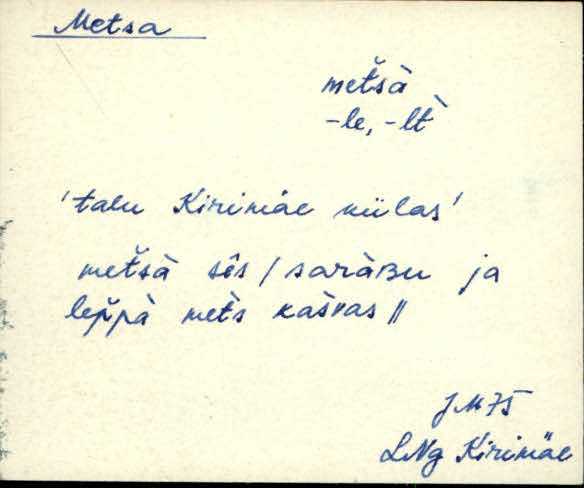 Metsa
metšà
-le, -lt
'talu Kirimäe külas'
metšà sês / saràBu ja
leppà metš kašvas ||
JM 75
LNg Kirimäe